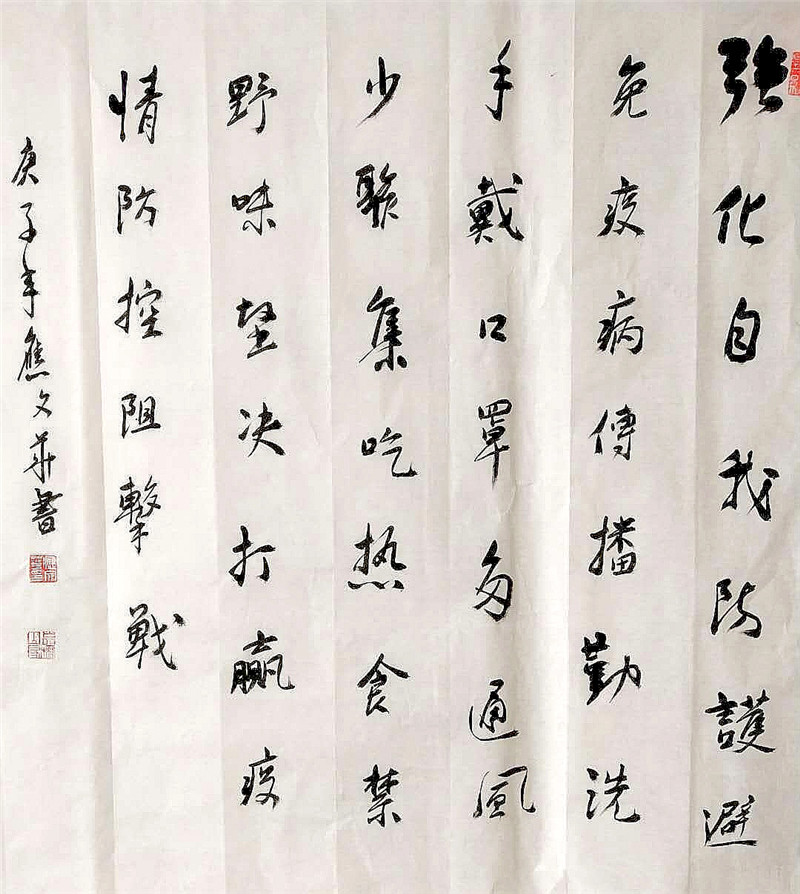 强化自我防護避
免疫病傳播勤洗
手戴口罩多通風
少聚集吃热食禁
野味坚决打赢疫
情防控阻擊戰
庚子年應文華書